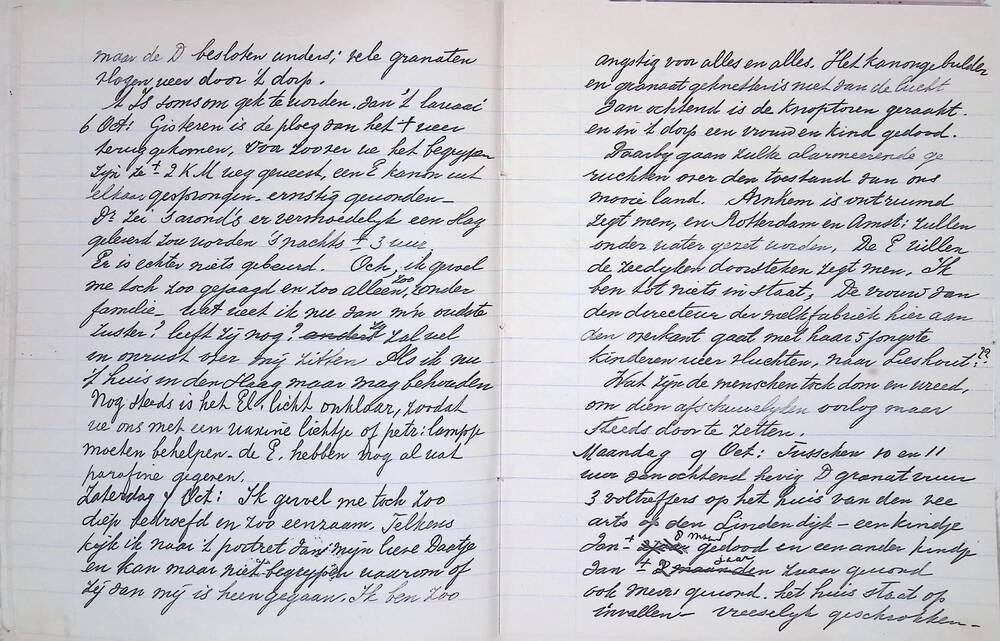 maar de D besloten anders; vele granaten
vlogen weer door 't dorp.
't Is soms om gek te worden, van 't lawaai
6 Oct: Gisteren is de ploeg van het + weer
teruggekomen, voor zoover we het begrypen
zyn ze ± 2 KM weg geweest, een E kanon uit
elkaar gesprongen, ernstig gewonden –
Dr zei 's avond's er vermoedelyk een slag
geleverd zou worden 's nachts ± 3 uur.
Er is echter niets gebeurd. Och, ik gevoel
me toch zoo gejaagd en zoo alleen, zoo zonder
familie – Wat weet ik nu van m'n oudste
zuster? leeft zij nog? Zy zal wel
in onrust over mij zitten. Als ik nu
't huis in den Haag maar mag behouden
Nog steeds is het El. licht onklaar, zoodat
we ons met een waxine lichtje of petr: lampje
moeten behelpen – de E. hebben nog al wat
parafine gegeven.
Zaterdag 7 Oct: Ik gevoel me toch zoo
diep bedroefd en zoo eenzaam. Telkens
kijk ik naar 't portret van mijn lieve Daatje
en kan maar niet begrypen waarom of
zij van mij is heengegaan. Ik ben zoo
angstig voor alles en alles. Het kanongebulder
en granaat geknetter is niet van de lucht
Van ochtend is de Knoptoren geraakt.
en in 't dorp een vrouw en kind gedood.
Daarby gaan zulke alarmeerende ge
ruchten over den toestand van ons
mooie land. Arnhem is ontruimd
zegt men, en Rotterdam en Amst: zullen
onder water gezet worden. De E willen
de zeedyken doorsteken zegt men. Ik
ben tot niets in staat, De vrouw van
den directeur der melkfabriek hier aan
den overkant gaat met haar 5 jongste
kinderen weer vluchten, naar Lieshout??
Wat zyn de menschen toch dom en wreed,
om dien afschuwelyken oorlog maar
steeds door te zetten.
Maandag 9 Oct: Tusschen 10 en 11
uur van ochtend hevig D granaatvuur
3 voltreffers op het huis van den vee
arts op den Lindendijk – een kindje
van ± 8 mnd gedood en een ander kindje
van ± 4 jaar zwaar gewond
ook Mevr gewond. het huis staat op
invallen vreeselyk geschrokken –